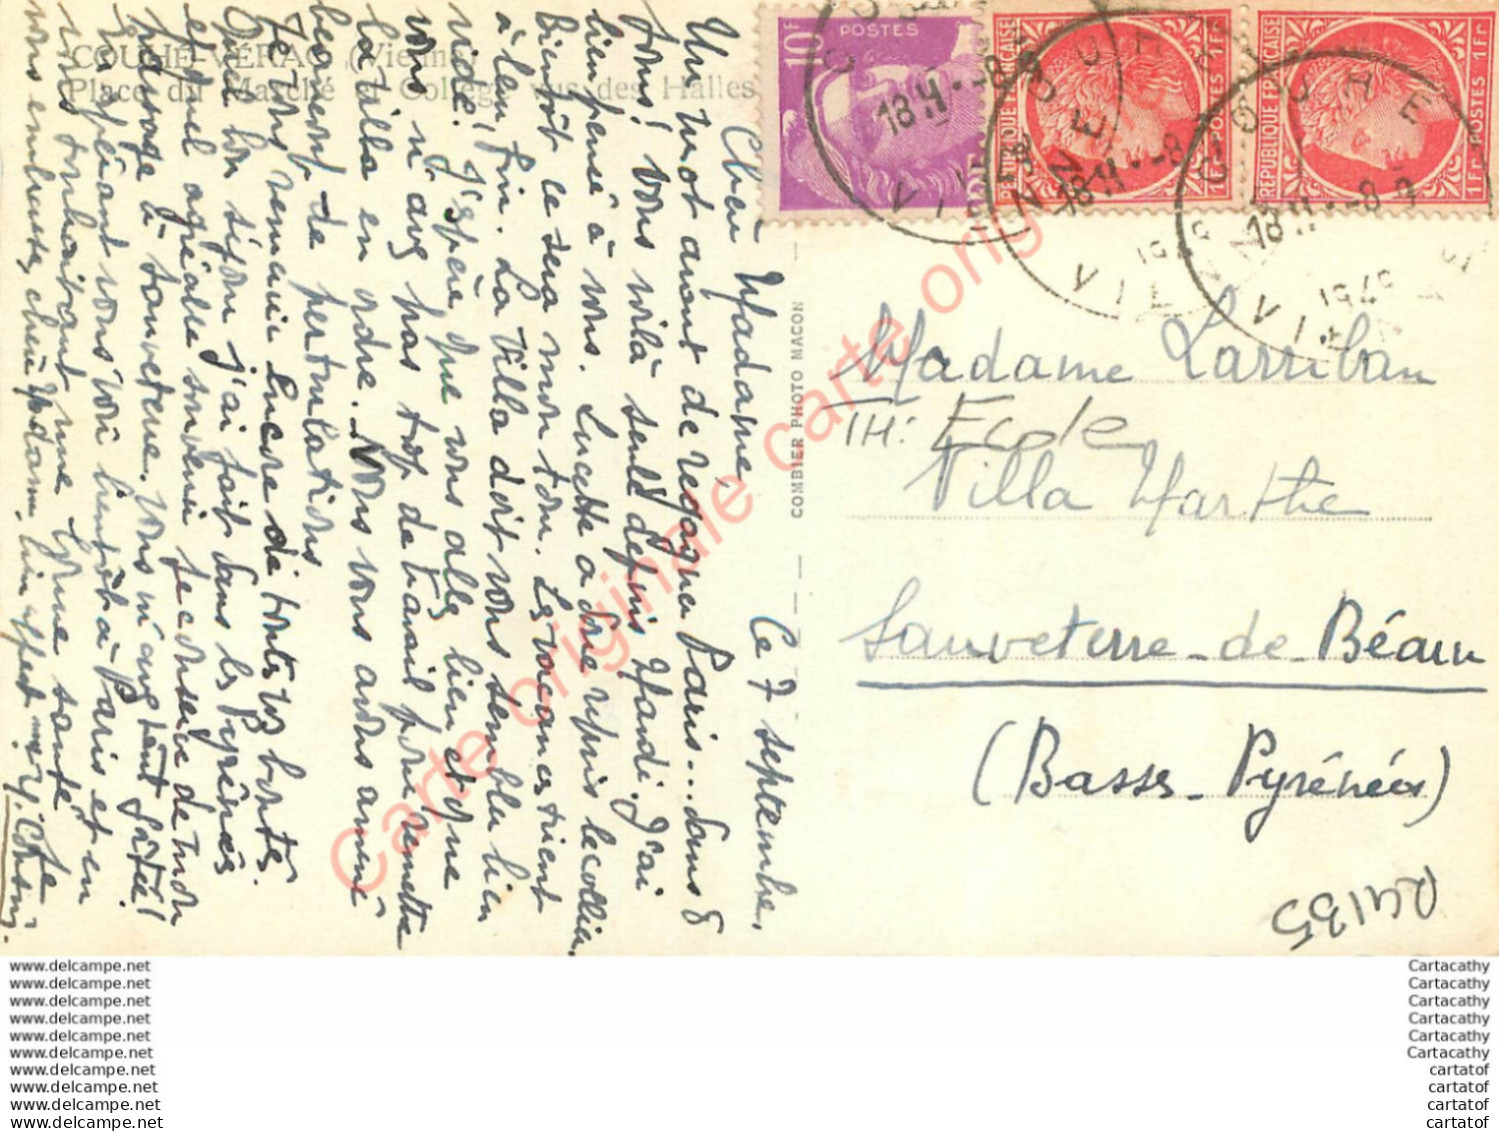 COUHÉ-VÉRAC (Vienne)
Place du Marché et Collège vus des Halles
Ce 7 septembre.
Chère Madame,
Un mot avant de regagner Paris... dans 8
jours! Vous voilà seule depuis Mardi. J'ai
bien pensé à vous. Lucette a dû repris le collier.
Bientôt ce sera mon tour. Les vacances tirent
à leur fin. La Villa doit vous sembler bien
vide! J'espère que vous allez bien et que
vous n'avez pas trop de travail pour remettre
la villa en ordre. Nous vous avons amené
beaucoup de perturbations
Je vous remercie encore de toutes vos bontés.
Du bon séjour j'ai fait dans les Pyrénées
et quel agréable souvenir je conserve de mon
passage à Sauveterre. Vous m'avez tant gâtée!
En espérant vous voir bientôt à Paris et en
vous souhaitant une bonne santé je
vous embrasse, chère Madame, bien affectueusement
COMBIER PHOTO MACON
10F
POSTES
REPUBLIQUE FRANÇAISE
1Fr POSTES 1Fr
REPUBLIQUE FRANÇAISE
1Fr POSTES 1Fr
COUHE
18 H - 8-9
1949
VIENNE
Madame Larriban
TH: Ecole
Villa Marthe
Sauveterre-de-Béarn
(Basses-Pyrénées)
R4135
Carte originale carte originale
www.delcampe.net
www.delcampe.net
www.delcampe.net
www.delcampe.net
www.delcampe.net
www.delcampe.net
www.delcampe.net
www.delcampe.net
www.delcampe.net
www.delcampe.net
Cartacathy
Cartacathy
Cartacathy
Cartacathy
Cartacathy
Cartacathy
cartatof
cartatof
cartatof
cartatof